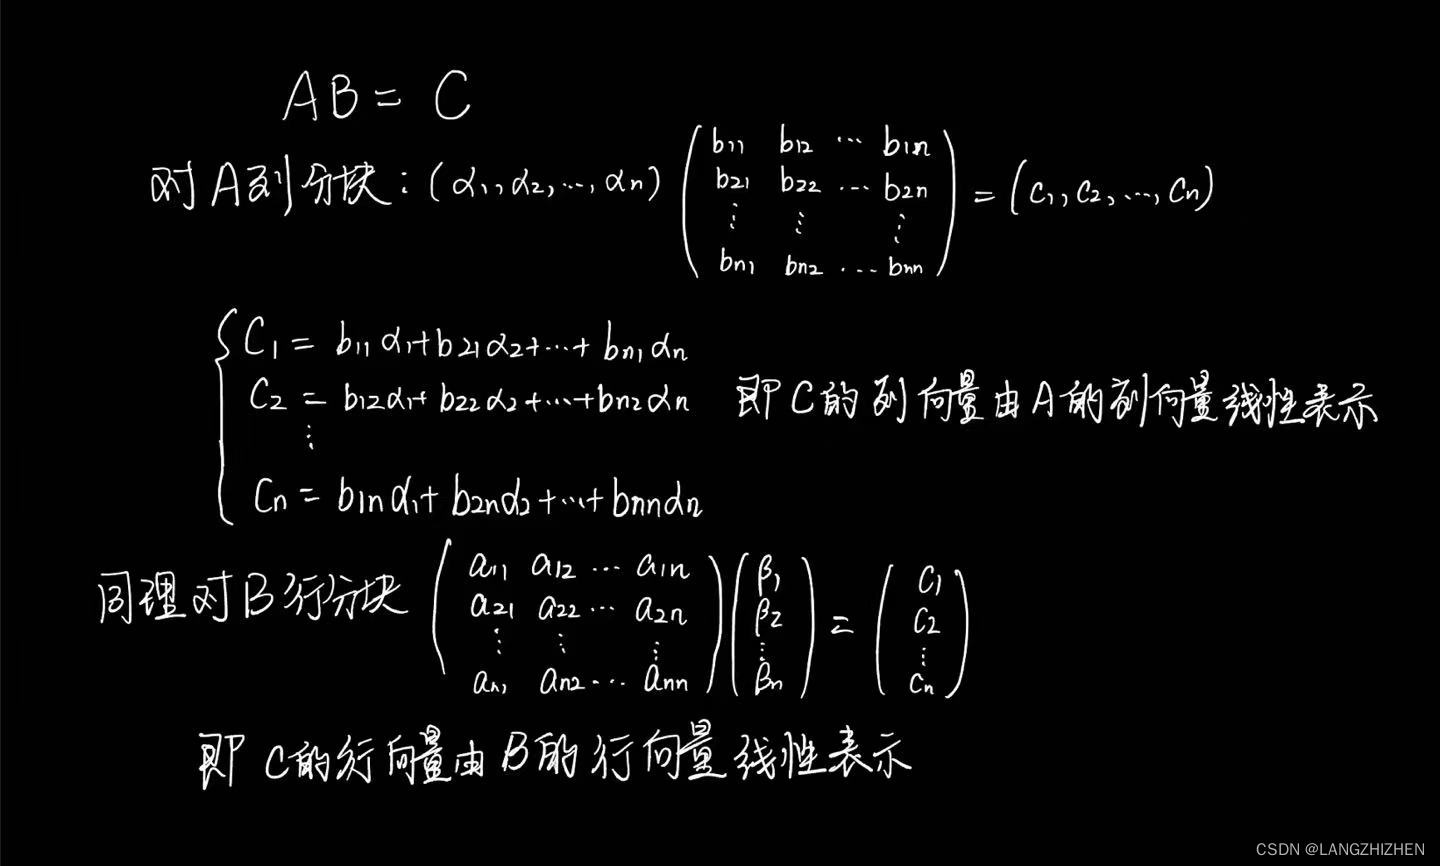 AB = C
对A列分块：(α1, α2, ..., αn) ( b11 b12 ... b1n
b21 b22 ... b2n
⋮ ⋮ ⋮
bn1 bn2 ... bnn ) = (c1, c2, ..., cn)
{ C1 = b11α1+b21α2+...+bn1αn
C2 = b12α1+b22α2+...+bn2αn 即C的列向量由A的列向量线性表示
⋮
Cn = b1nα1+b2nα2+...+bnnαn
同理对B行分块 ( a11 a12 ... a1n
a21 a22 ... a2n
⋮ ⋮ ⋮
an1 an2 ... ann ) ( β1
β2
⋮
βn ) = ( C1
C2
⋮
Cn )
即C的行向量由B的行向量线性表示
CSDN @LANGZHIZHEN